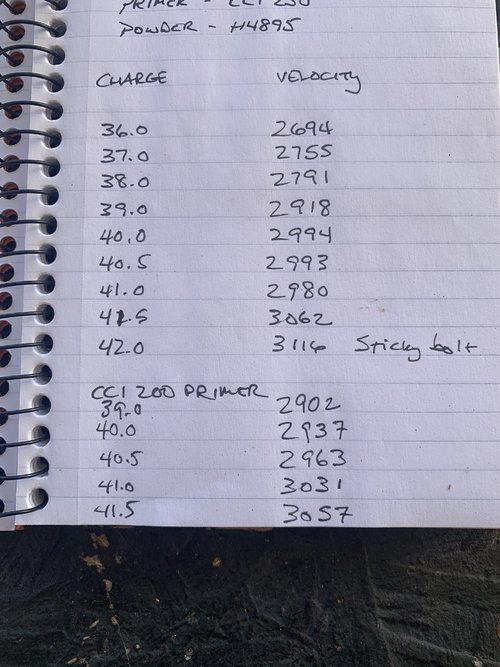 PRIMER - CCI 250
POWDER - H4895
CHARGE VELOCITY
36.0 2694
37.0 2755
38.0 2791
39.0 2918
40.0 2994
40.5 2993
41.0 2980
41.5 3062
42.0 3116 Sticky bolt
CCI 200 PRIMER
39.0 2902
40.0 2937
40.5 2963
41.0 3031
41.5 3057